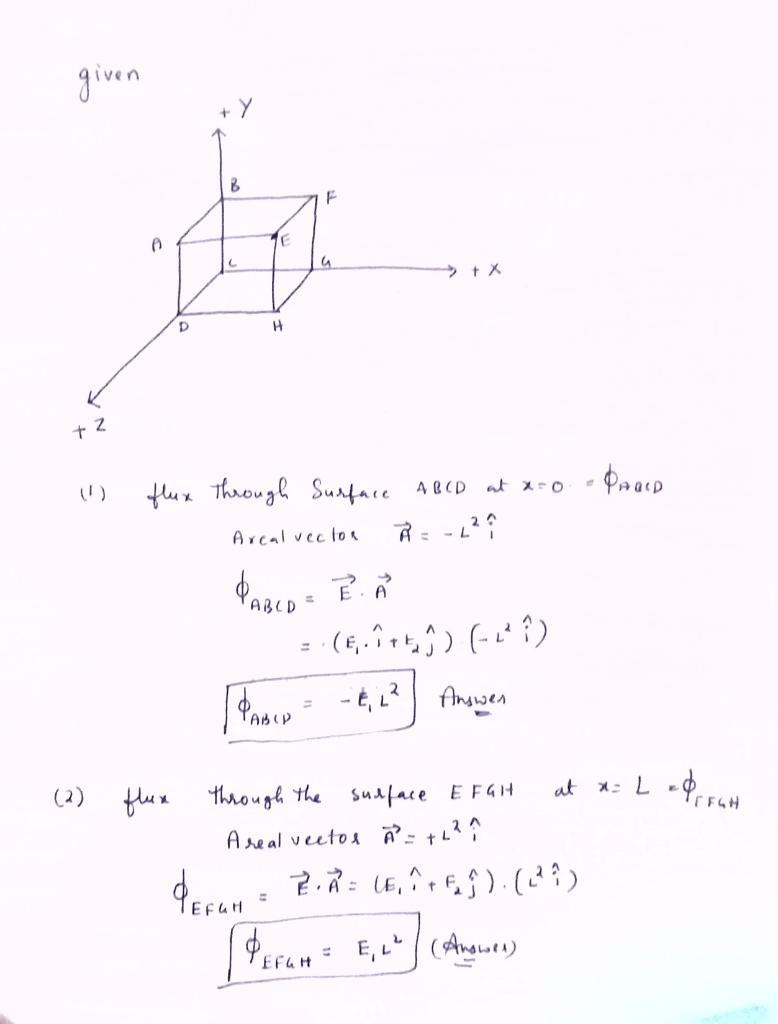 given
+ Y
B
F
A
E
C
G
+ X
D
H
+ Z
(1) flux through Surface ABCD at x=0 = ϕABCD
Areal vector A⃗ = - L² î
ϕABCD = E⃗ . A⃗
= (E₁ î + E₂ ĵ) (- L² î)
ϕABCD = - E₁ L² Answer
(2) flux through the surface EFGH at x = L = ϕEFGH
Areal vector A⃗ = + L² î
ϕEFGH = E⃗ . A⃗ = (E₁ î + E₂ ĵ) . (L² î)
ϕEFGH = E₁ L² (Answer)